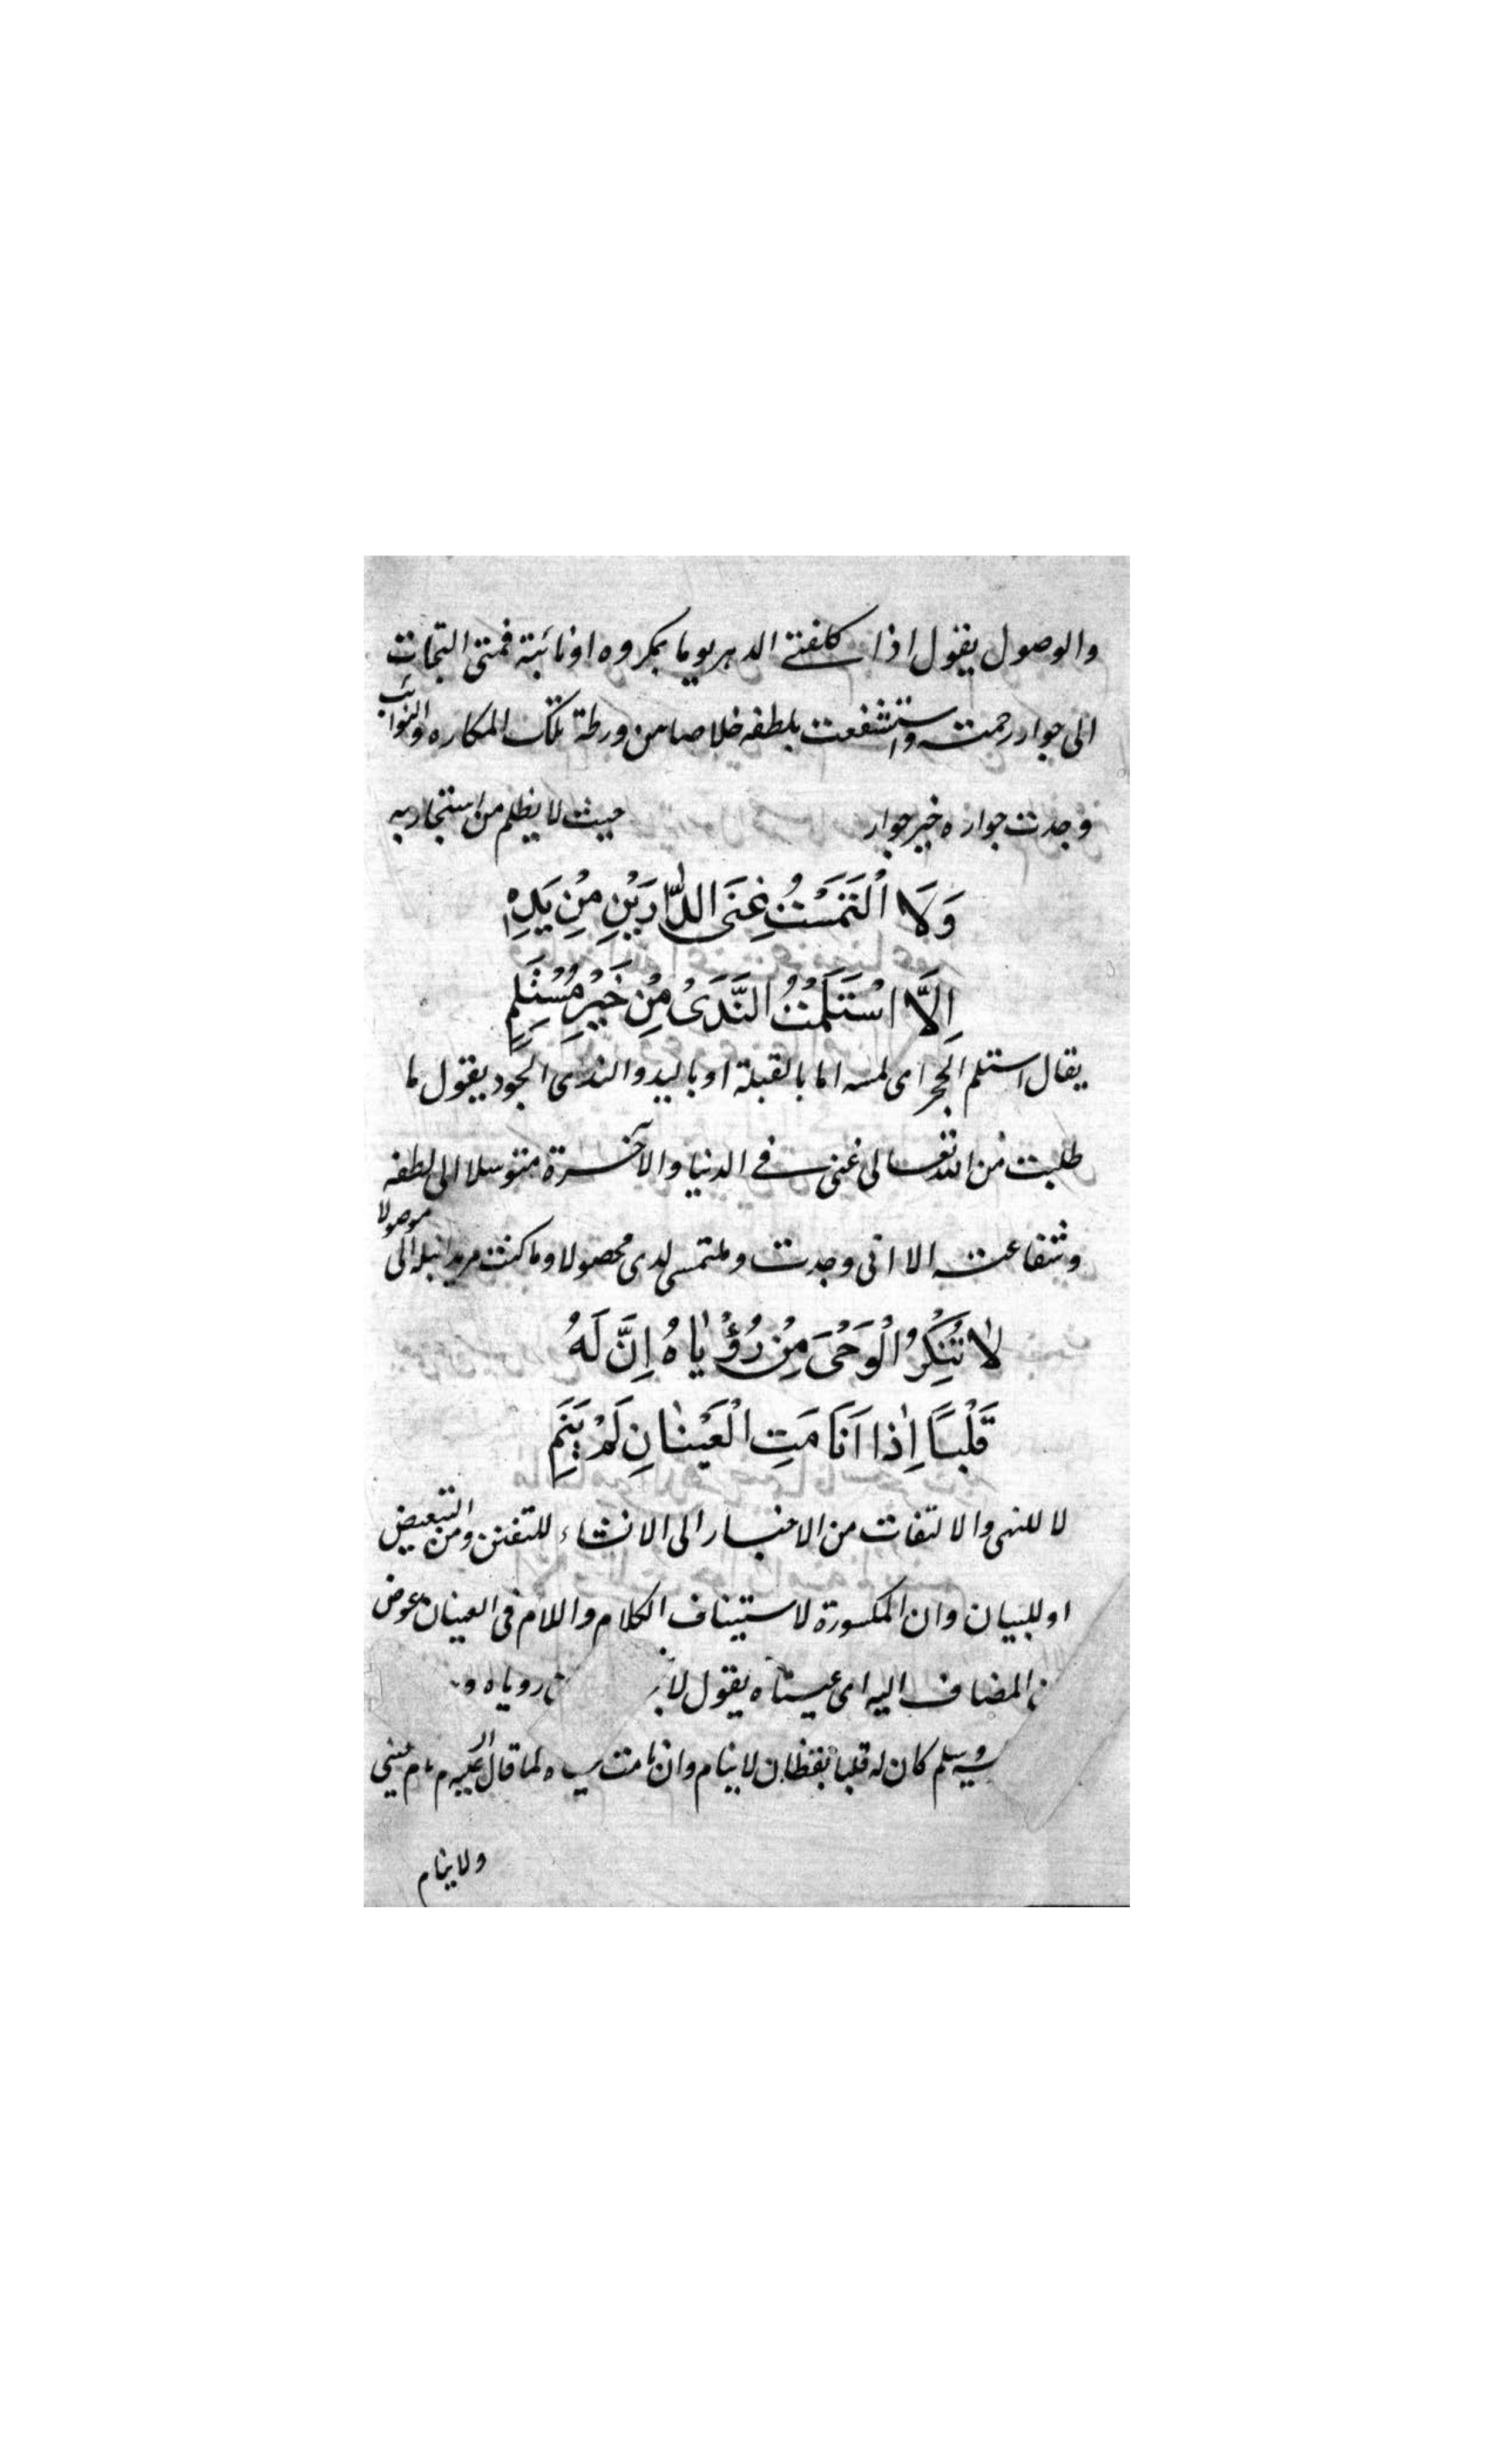 والوصول يقول اذا كلفنى الدهر يوما بمكروه او نائبة فمتى التجات
الى جوار رحمته واستشفعت بلطفه خلاصا من ورطة تلك المكاره والنوائب
وجدت جواره خير جوار حيث لا يظلم من استجار به
وَلَا الْتَمَسْتُ غِنَى الدَّارَيْنِ مِنْ يَدِهِ
اِلَّا اسْتَلَمْتُ النَّدَىٰ مِنْ خَيْرِ مُسْتَلَمِ
يقال استلم الحجر اى لمسه اما بالقبلة او باليد والندى الجود يقول ما
طلبت من الله تعالى غنى فى الدنيا والآخرة متوسلا الى لطفه
وشفاعته الا انى وجدت وملتمسى لدى محصولا وما كنت مريد الى موصولا
لَا تُنْكِرُ الْوَحْىَ مِنْ رُؤْيَاهُ اِنَّ لَهُ
قَلْبًا اِذَا اَنَامَتِ الْعَيْنَانِ لَمْ يَنَمِ
لا للنهى والالتفات من الاخبار الى الانشاء للتفنن ومن التبعيض
او للبيان وان المكسورة لاستيناف الكلام واللام فى العينان عوض
المضاف اليه اى عيناه يقول لا روياه و
وسلم كان له قلبا يقظان لا ينام وان نامت لما قال عليه م نام عينى
ولا ينام